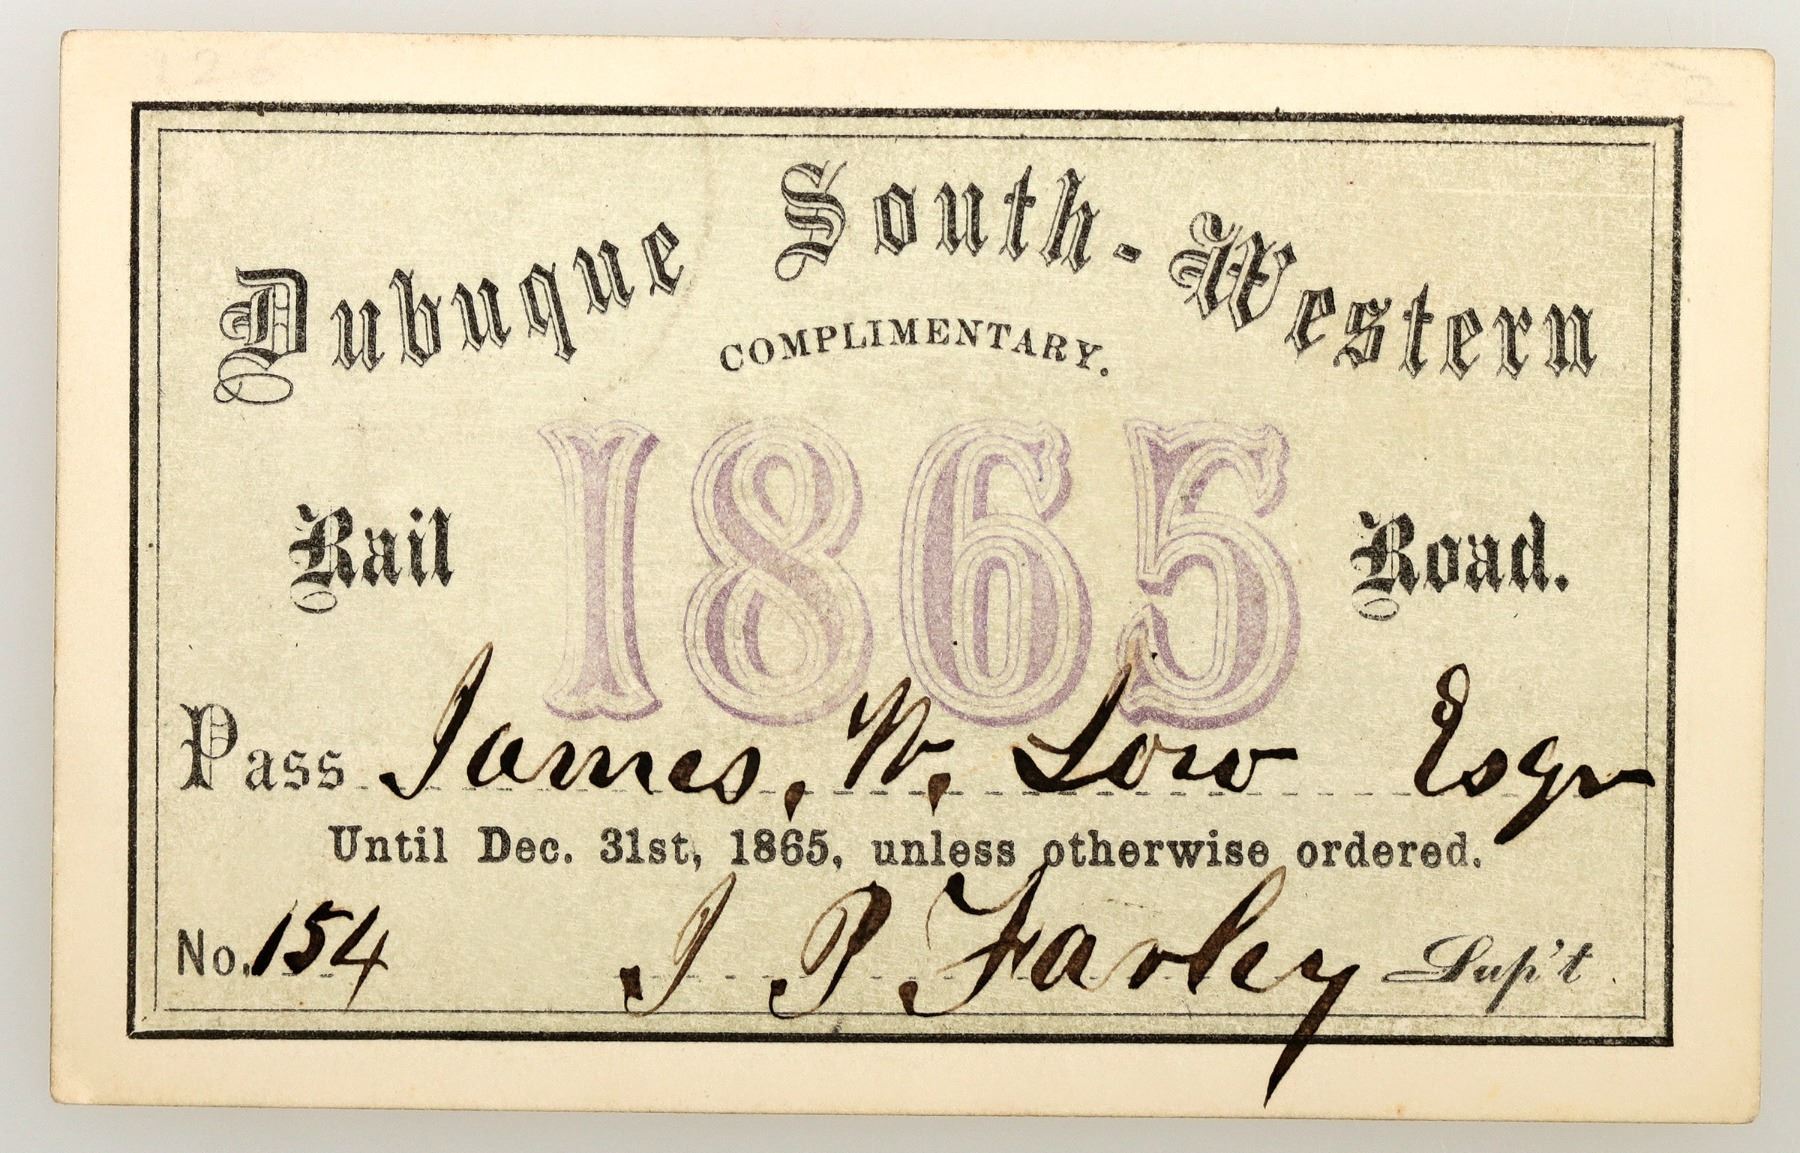 Dubuque South-Western
COMPLIMENTARY.
1865
Rail Road.
Pass James, W, Low Esqr
Until Dec. 31st, 1865, unless otherwise ordered.
No. 154 J P Farley Sup't.